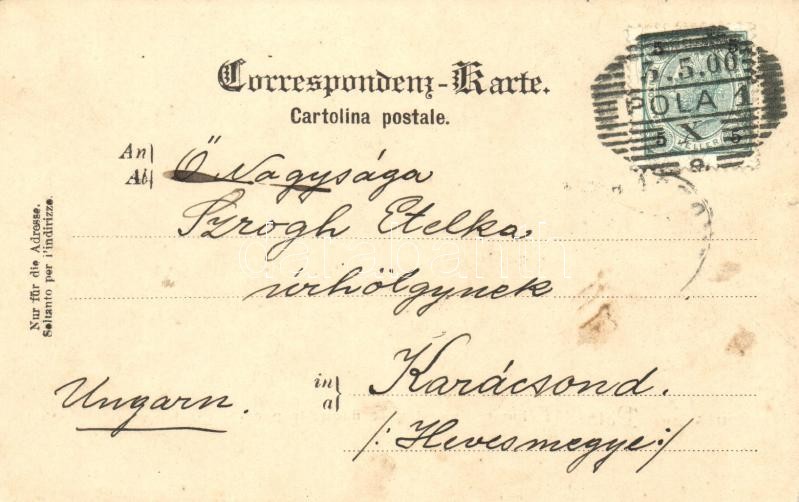 Correspondenz-Karte.
Cartolina postale.
5 5
5.5.00
POLA 1
X
5 5
HELLER
9.
An
Al
Ő Nagysága
Szrogh Etelka
úrhölgynek
in
a
Karácsond.
/: Hevesmegye :/
Ungarn.
Nur für die Adresse.
Soltanto per l'indirizzo.
darabanth